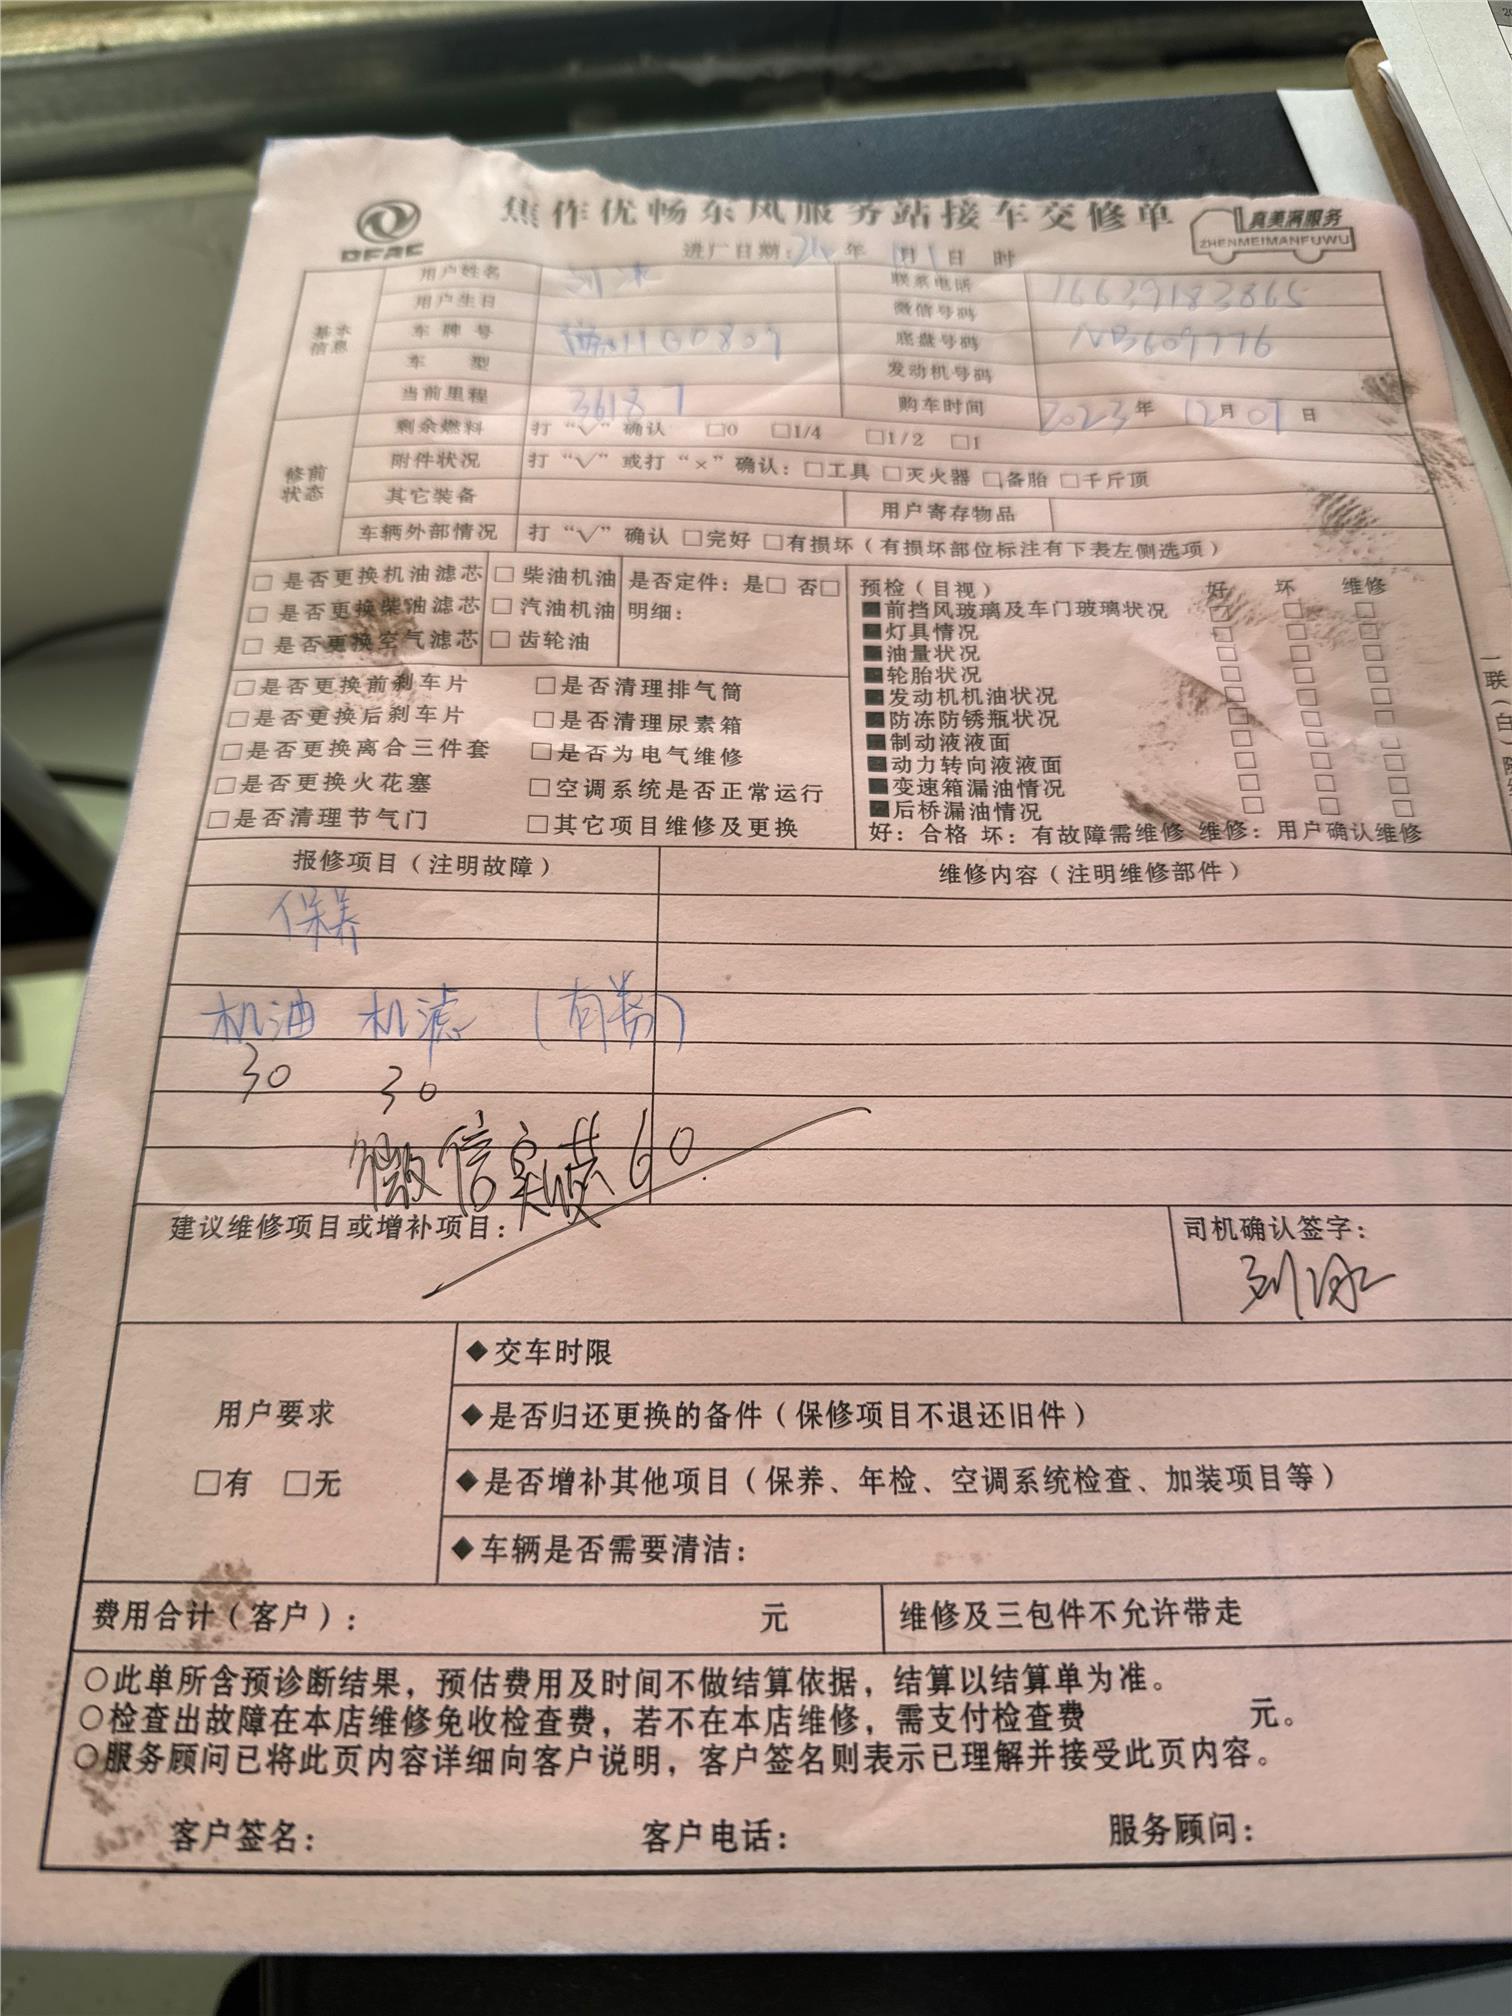 焦作优畅东风服务站接车交修单
真美满服务
ZHENMEIMANFUWU
进厂日期：24年 月1日 时
基本信息
用户姓名 刘冰 联系电话 16639183865
用户生日 微信号码
车牌号 底盘号码 NB609776
车型 发动机号码
当前里程 36187 购车时间 2023年12月07日
修前状态
剩余燃料 打“√”确认 □0 □1/4 □1/2 □1
附件状况 打“√”或打“×”确认：□工具 □灭火器 □备胎 □千斤顶
其它装备 用户寄存物品
车辆外部情况 打“√”确认 □完好 □有损坏（有损坏部位标注有下表左侧选项）
□是否更换机油滤芯 □柴油机油 是否定件：是□ 否□
□是否更换柴油滤芯 □汽油机油 明细：
□是否更换空气滤芯 □齿轮油
□是否更换前刹车片 □是否清理排气筒
□是否更换后刹车片 □是否清理尿素箱
□是否更换离合三件套 □是否为电气维修
□是否更换火花塞 □空调系统是否正常运行
□是否清理节气门 □其它项目维修及更换
预检（目视） 好 坏 维修
■前挡风玻璃及车门玻璃状况 □ □ □
■灯具情况 □ □ □
■油量状况 □ □ □
■轮胎状况 □ □ □
■发动机机油状况 □ □ □
■防冻防锈瓶状况 □ □ □
■制动液液面 □ □ □
■动力转向液液面 □ □ □
■变速箱漏油情况 □ □ □
■后桥漏油情况 □ □ □
好：合格 坏：有故障需维修 维修：用户确认维修
一联（白）
报修项目（注明故障） 维修内容（注明维修部件）
保养
机油 机滤 （有券）
30 30
微信实装60
建议维修项目或增补项目： 司机确认签字：
刘冰
用户要求
□有 □无
◆交车时限
◆是否归还更换的备件（保修项目不退还旧件）
◆是否增补其他项目（保养、年检、空调系统检查、加装项目等）
◆车辆是否需要清洁：
费用合计（客户）： 元 维修及三包件不允许带走
○此单所含预诊断结果，预估费用及时间不做结算依据，结算以结算单为准。
○检查出故障在本店维修免收检查费，若不在本店维修，需支付检查费 元。
○服务顾问已将此页内容详细向客户说明，客户签名则表示已理解并接受此页内容。
客户签名： 客户电话： 服务顾问：